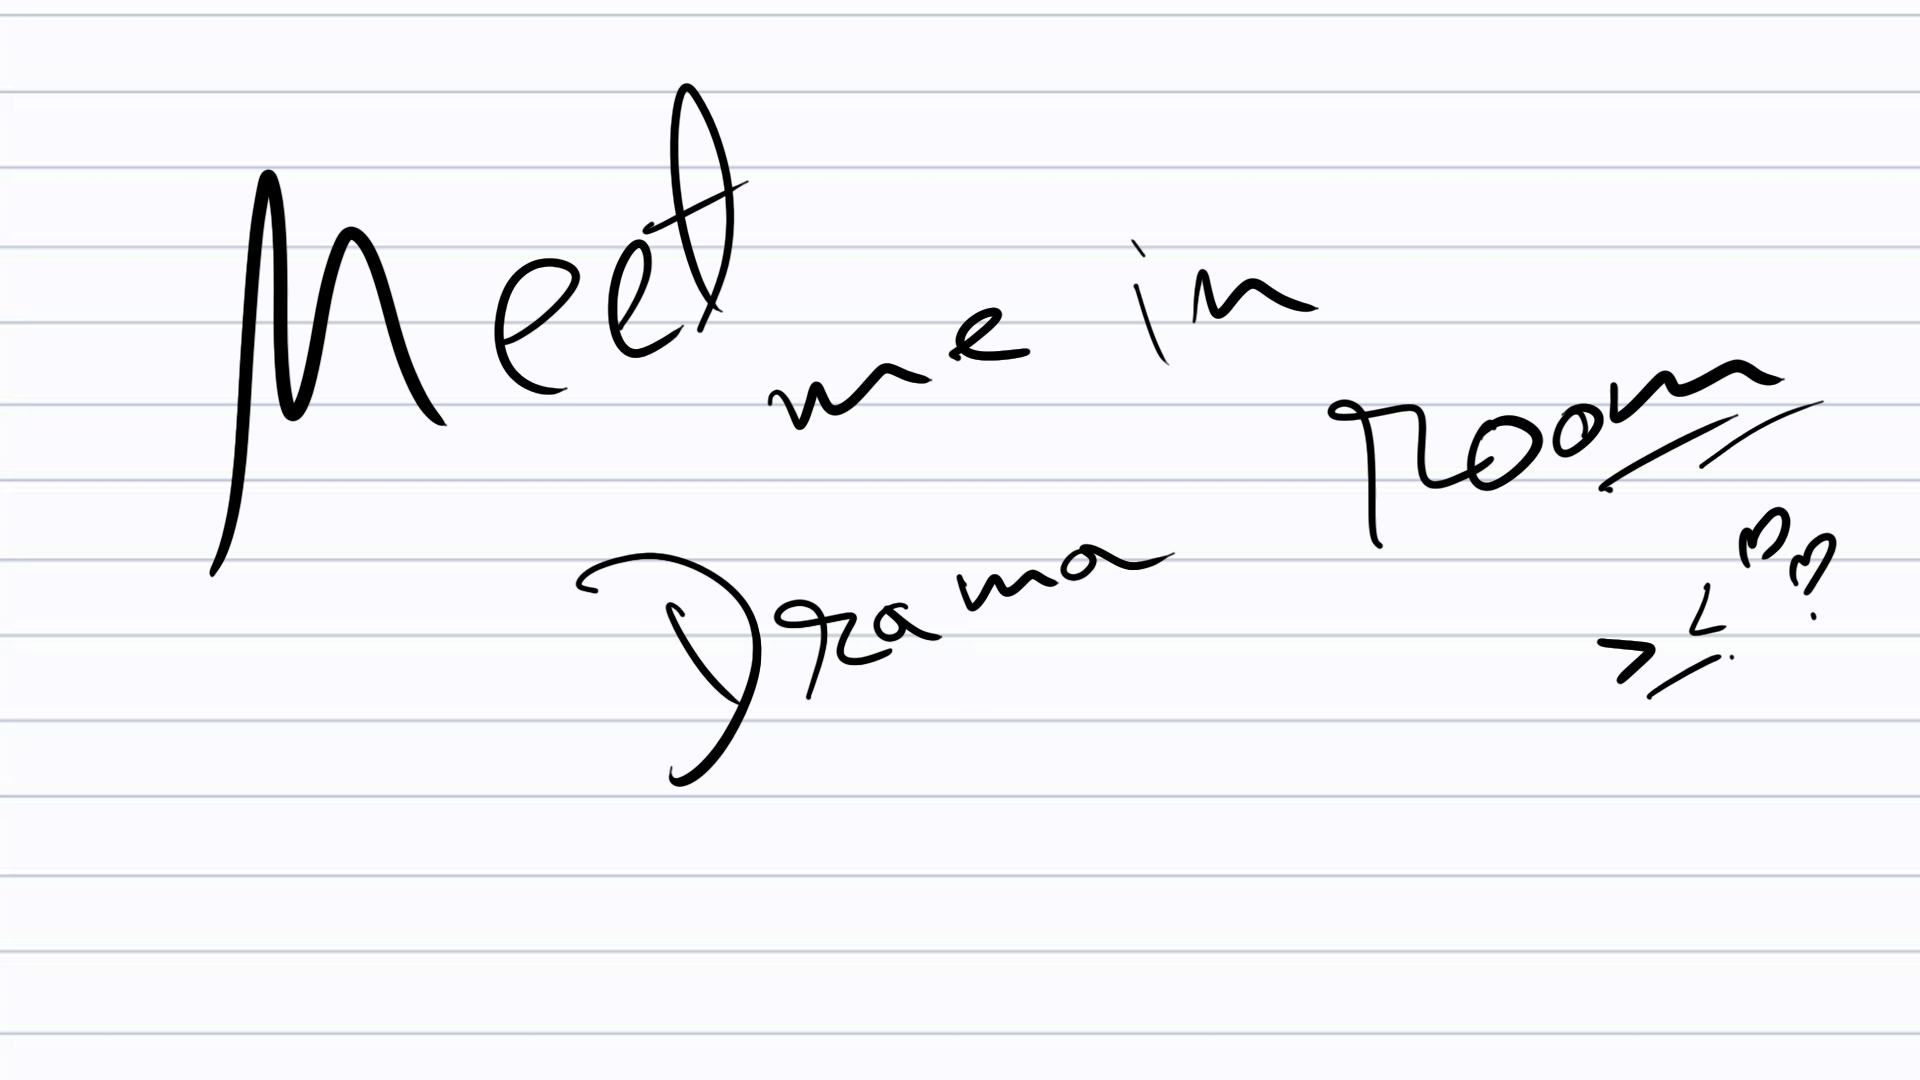 Meet me in
Drama room
>_<